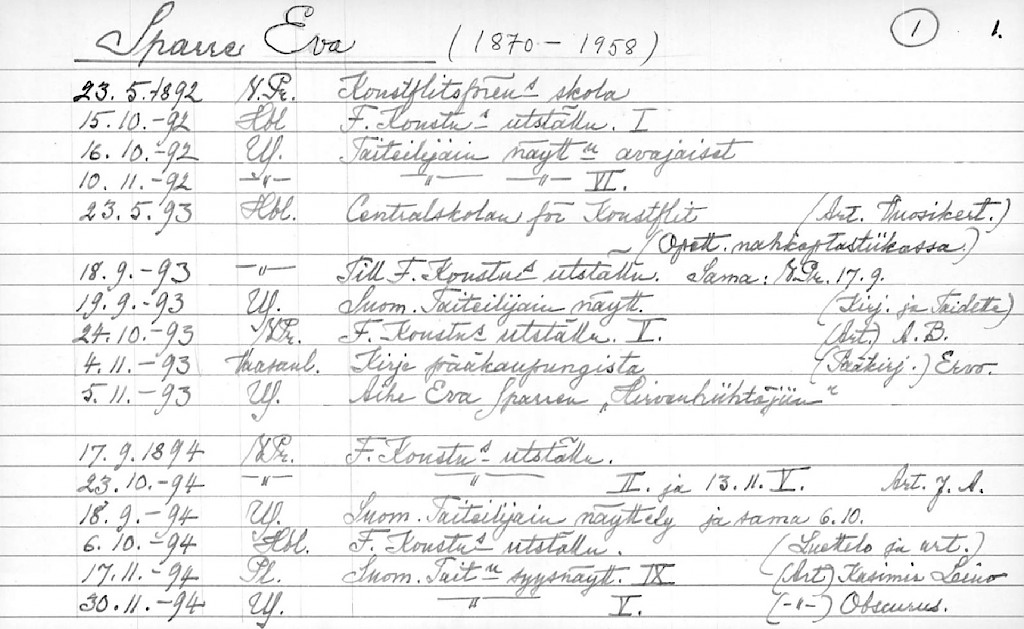 Sparre Eva (1870 - 1958) 1 1.
23. 5. 1892 N.Pr. Konstflitsfören^s skola
15. 10. -92 Hbl F. Konstn^s utställn. I
16. 10. -92 Us. Taiteilijain näytt^n avajaiset
10. 11. -92 -"- -"- -"- VI.
23. 5. 93 Hbl. Centralskolan för Konstflit (Art. Vuosikert.)
(Opett. nahkaplastiikassa.)
18. 9. -93 -"- Till F. Konstn^s utställn. Sama: N.Pr. 17.9.
19. 9. -93 Us. Suom. Taiteilijain näytt. (Kirj. ja Taidetta)
24. 10. -93 N.Pr. F. Konstn^s utställn. I. (Art.) A.B.
4. 11. -93 Kirje pääkaupungista (Pääkirj.) Ervo.
5. 11. -93 Us. Aihe Eva Sparren „Hirvenhiihtäjiin"
17. 9. 1894 N.Pr. F. Konstn^s utställn.
23. 10. -94 -"- -"- II. ja 13. 11. V. Art. J. A.
18. 9. -94 Us. Suom. Taiteilijain näyttely ja sama 6.10.
6. 10. -94 Hbl. F. Konstn^s utställn. (Luettelo ja art.)
17. 11. -94 Pl. Suom. Tait^n syysnäytt. IX (Art) Kasimir Leino
30. 11. -94 Us. -"- V. (-"-) Obscurus.